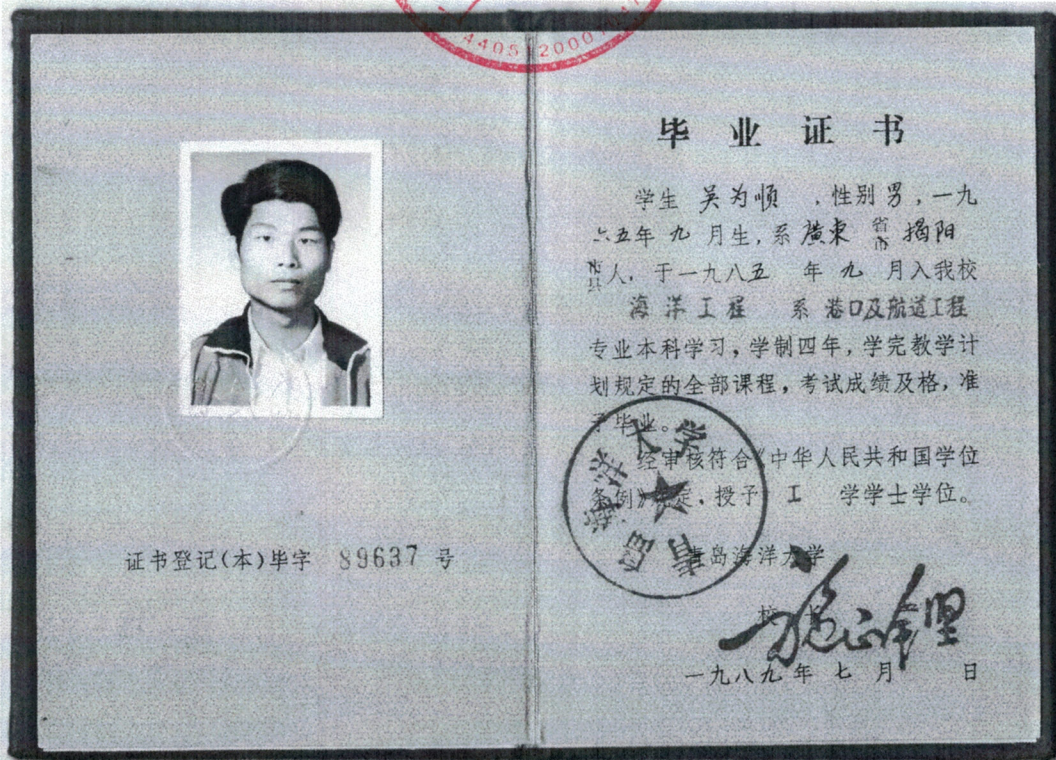 证书登记(本)毕字 89637 号
毕业证书
学生 吴为顺 ,性别男,一九
六五年 九 月生,系 廣東 省市 揭阳
市县人,于一九八五 年 九 月入我校
海洋工程 系 港口及航道工程
专业本科学习,学制四年,学完教学计
划规定的全部课程,考试成绩及格,准
予毕业。
经审核符合《中华人民共和国学位
条例》规定,授予 工 学学士学位。
青岛海洋大学
青岛海洋大学
校长
施正铿
一九八九年 七 月 日